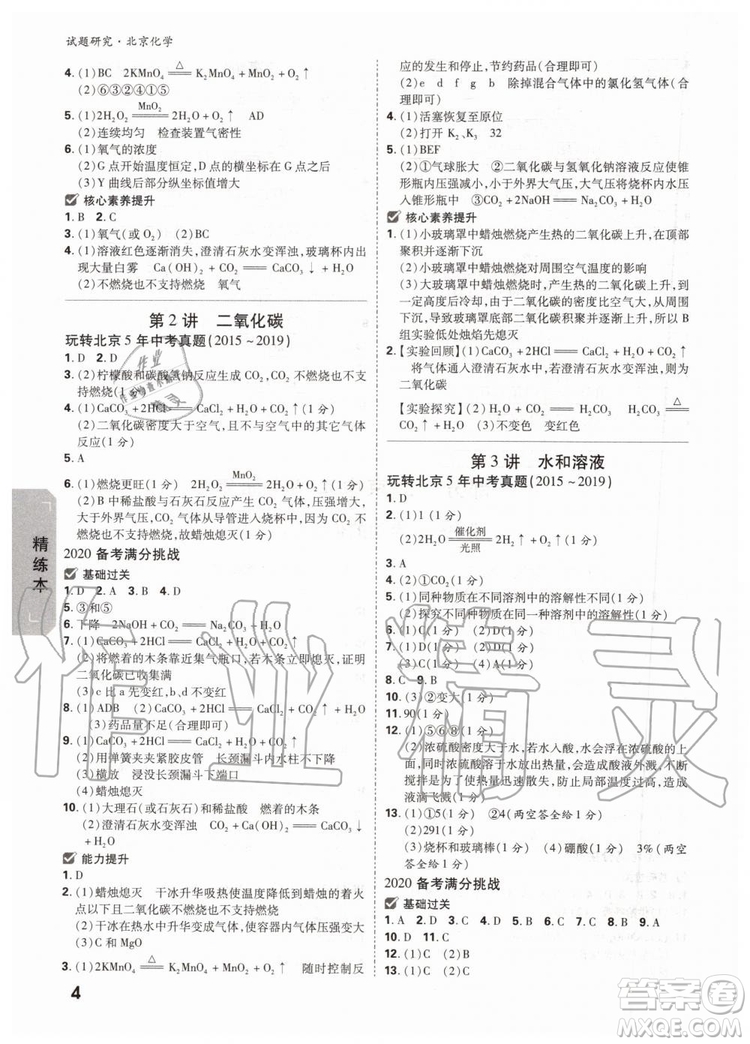 试题研究·北京化学
4. (1)BC 2KMnO₄ =△= K₂MnO₄ + MnO₂ + O₂↑
(2)⑥③②④①⑤
5. (1)2H₂O₂ =MnO₂= 2H₂O + O₂↑ AD
(2)连续均匀 检查装置气密性
6. (1)氧气的浓度
(2)G点开始温度恒定,G点的横坐标对应时间
(3)Y曲线后部分纵坐标值增大
核心素养提升
1. B 2. C
3. (1)氧气(或O₂) (2)BC
4. (1)溶液红色逐渐消失,澄清石灰水变浑浊,玻璃杯内出
现大量白雾 Ca(OH)₂ + CO₂ == CaCO₃↓ + H₂O
(2)不燃烧也不支持燃烧 氧气
第2讲 二氧化碳
玩转北京5年中考真题(2015~2019)
1. D 2. D
3. (2)柠檬酸和碳酸氢钠反应生成CO₂,CO₂不燃烧、不
支持燃烧
4. (1)CaCO₃ + 2HCl == CaCl₂ + H₂O + CO₂↑(1分)
(2)二氧化碳密度大于空气,且不与空气中主要气体
反应(1分)
5. A
6. (1)燃烧更旺(1分) 2H₂O₂ =MnO₂= 2H₂O + O₂↑(1分)
(2)B中稀盐酸与石灰石反应产生CO₂气体,压强增
大,大于外界气压,CO₂气体从导管进入烧杯中,CO₂
不燃烧、不支持燃烧,故蜡烛熄灭(1分)
2020备考满分挑战
基础过关
1. D 2. A 3. D 4. B
5. ③和⑤
6. 下降 2NaOH + CO₂ == Na₂CO₃ + H₂O
7. (1)CaCO₃ + 2HCl == CaCl₂ + H₂O + CO₂↑
(2)将燃着的木条靠近集气瓶口,若木条立即熄灭,证明
二氧化碳已收集满
(3)c比a先变红,b、d不变红
8. (1)ADB CaCO₃ + 2HCl == CaCl₂ + H₂O + CO₂↑
(3)药品量不足(合理即可)
9. (1)CaCO₃ + 2HCl == CaCl₂ + H₂O + CO₂↑
(2)用弹簧夹夹紧胶皮管 长颈漏斗内水柱
(3)横放 浸没长颈漏斗下端口
(4)蜡烛熄灭
10. (1)大理石(或石灰石)和稀盐酸 燃着的木条
(2)澄清石灰水变浑浊 Ca(OH)₂ + CO₂ == CaCO₃↓ + H₂O
能力提升
1. B
2. (1)蜡烛熄灭 干冰升华吸热使温度降低到蜡烛的着火
点以下和二氧化碳不燃烧也不支持燃烧
(2)干冰在热水中升华变成气体,使容器内气体分子数目
增大
3. (1)2KMnO₄ =△= K₂MnO₄ + MnO₂ + O₂↑ 随时控制反
应的发生与停止,节约药品(合理即可)
(2)e d f g b 除掉混合气体中的氯化氢气体(合
理即可)
4. (1)活塞恢复至原位
(2)打开K₂、K₃ 32
5. (1)BEF
(2)①气球胀大 ②二氧化碳与氢氧化钠溶液反应使
内压强减小,在外界大气压作用下,将烧杯中的水压
入锥形瓶中 ③CO₂ + 2NaOH == Na₂CO₃ + H₂O
核心素养提升
1. (1)小玻璃罩中蜡烛燃烧产生热的二氧化碳上升,在顶部
聚积并逐渐下沉
(2)小玻璃罩中蜡烛燃烧对周围空气温度的影响
(3)大玻璃罩中蜡烛燃烧产生热的二氧化碳上升,由于
高度过高后冷却,由于二氧化碳的密度比空气的大,冷
的二氧化碳聚积并逐渐下沉,所以B
组实验低处蜡烛焰先熄灭
2. 【实验回顾】(1)CaCO₃ + 2HCl == CaCl₂ + H₂O + CO₂↑
将气体通入澄清石灰水中,若溶液变浑浊,证明气体为
二氧化碳
【实验探究】(2)H₂O + CO₂ == H₂CO₃ H₂CO₃ =△=
H₂O + CO₂↑ (3)不变色 变红色
第3讲 水和溶液
玩转北京5年中考真题(2015~2019)
1. D
2. (1)1(1分)
(2)2H₂O =催化剂/光照= 2H₂↑ + O₂↑(1分)
3. A
4. (2)①CO₂(1分)
5. (1)同种物质在不同溶剂中的溶解性不同(1分)
(2)不同物质在同一种溶剂中的溶解性不同(1分)
6. (1)B(1分) (2)D(1分)
7. (1)C(1分) (2)D(1分)
8. C 9. C
10. (3)②变大(1分)
11. 90(1分)
12. (1)⑤⑥⑧(1分)
(2)浓硫酸密度大于水,若水入酸,水会浮在浓硫酸的
上面,浓硫酸溶于水放出大量热,会造成酸液溅,不断
搅拌是为了使热量迅速散失,否则也会造成
液滴飞溅(1分)
13. (1)①55(1分) ②4(两空答全给1分)
(2)291(1分)
(3)烧杯和玻璃棒(1分) (4)硼酸 3%(两空答
对全给1分)
2020备考满分挑战
基础过关
1. A 2. D 3. A 4. D 5. C 6. B 7. B 8. B 9. A
10. D 11. C
12. (1)C (2)B
13. (1)C (2)C
精练本
4
作业精灵
答案圈
MXQE.COM